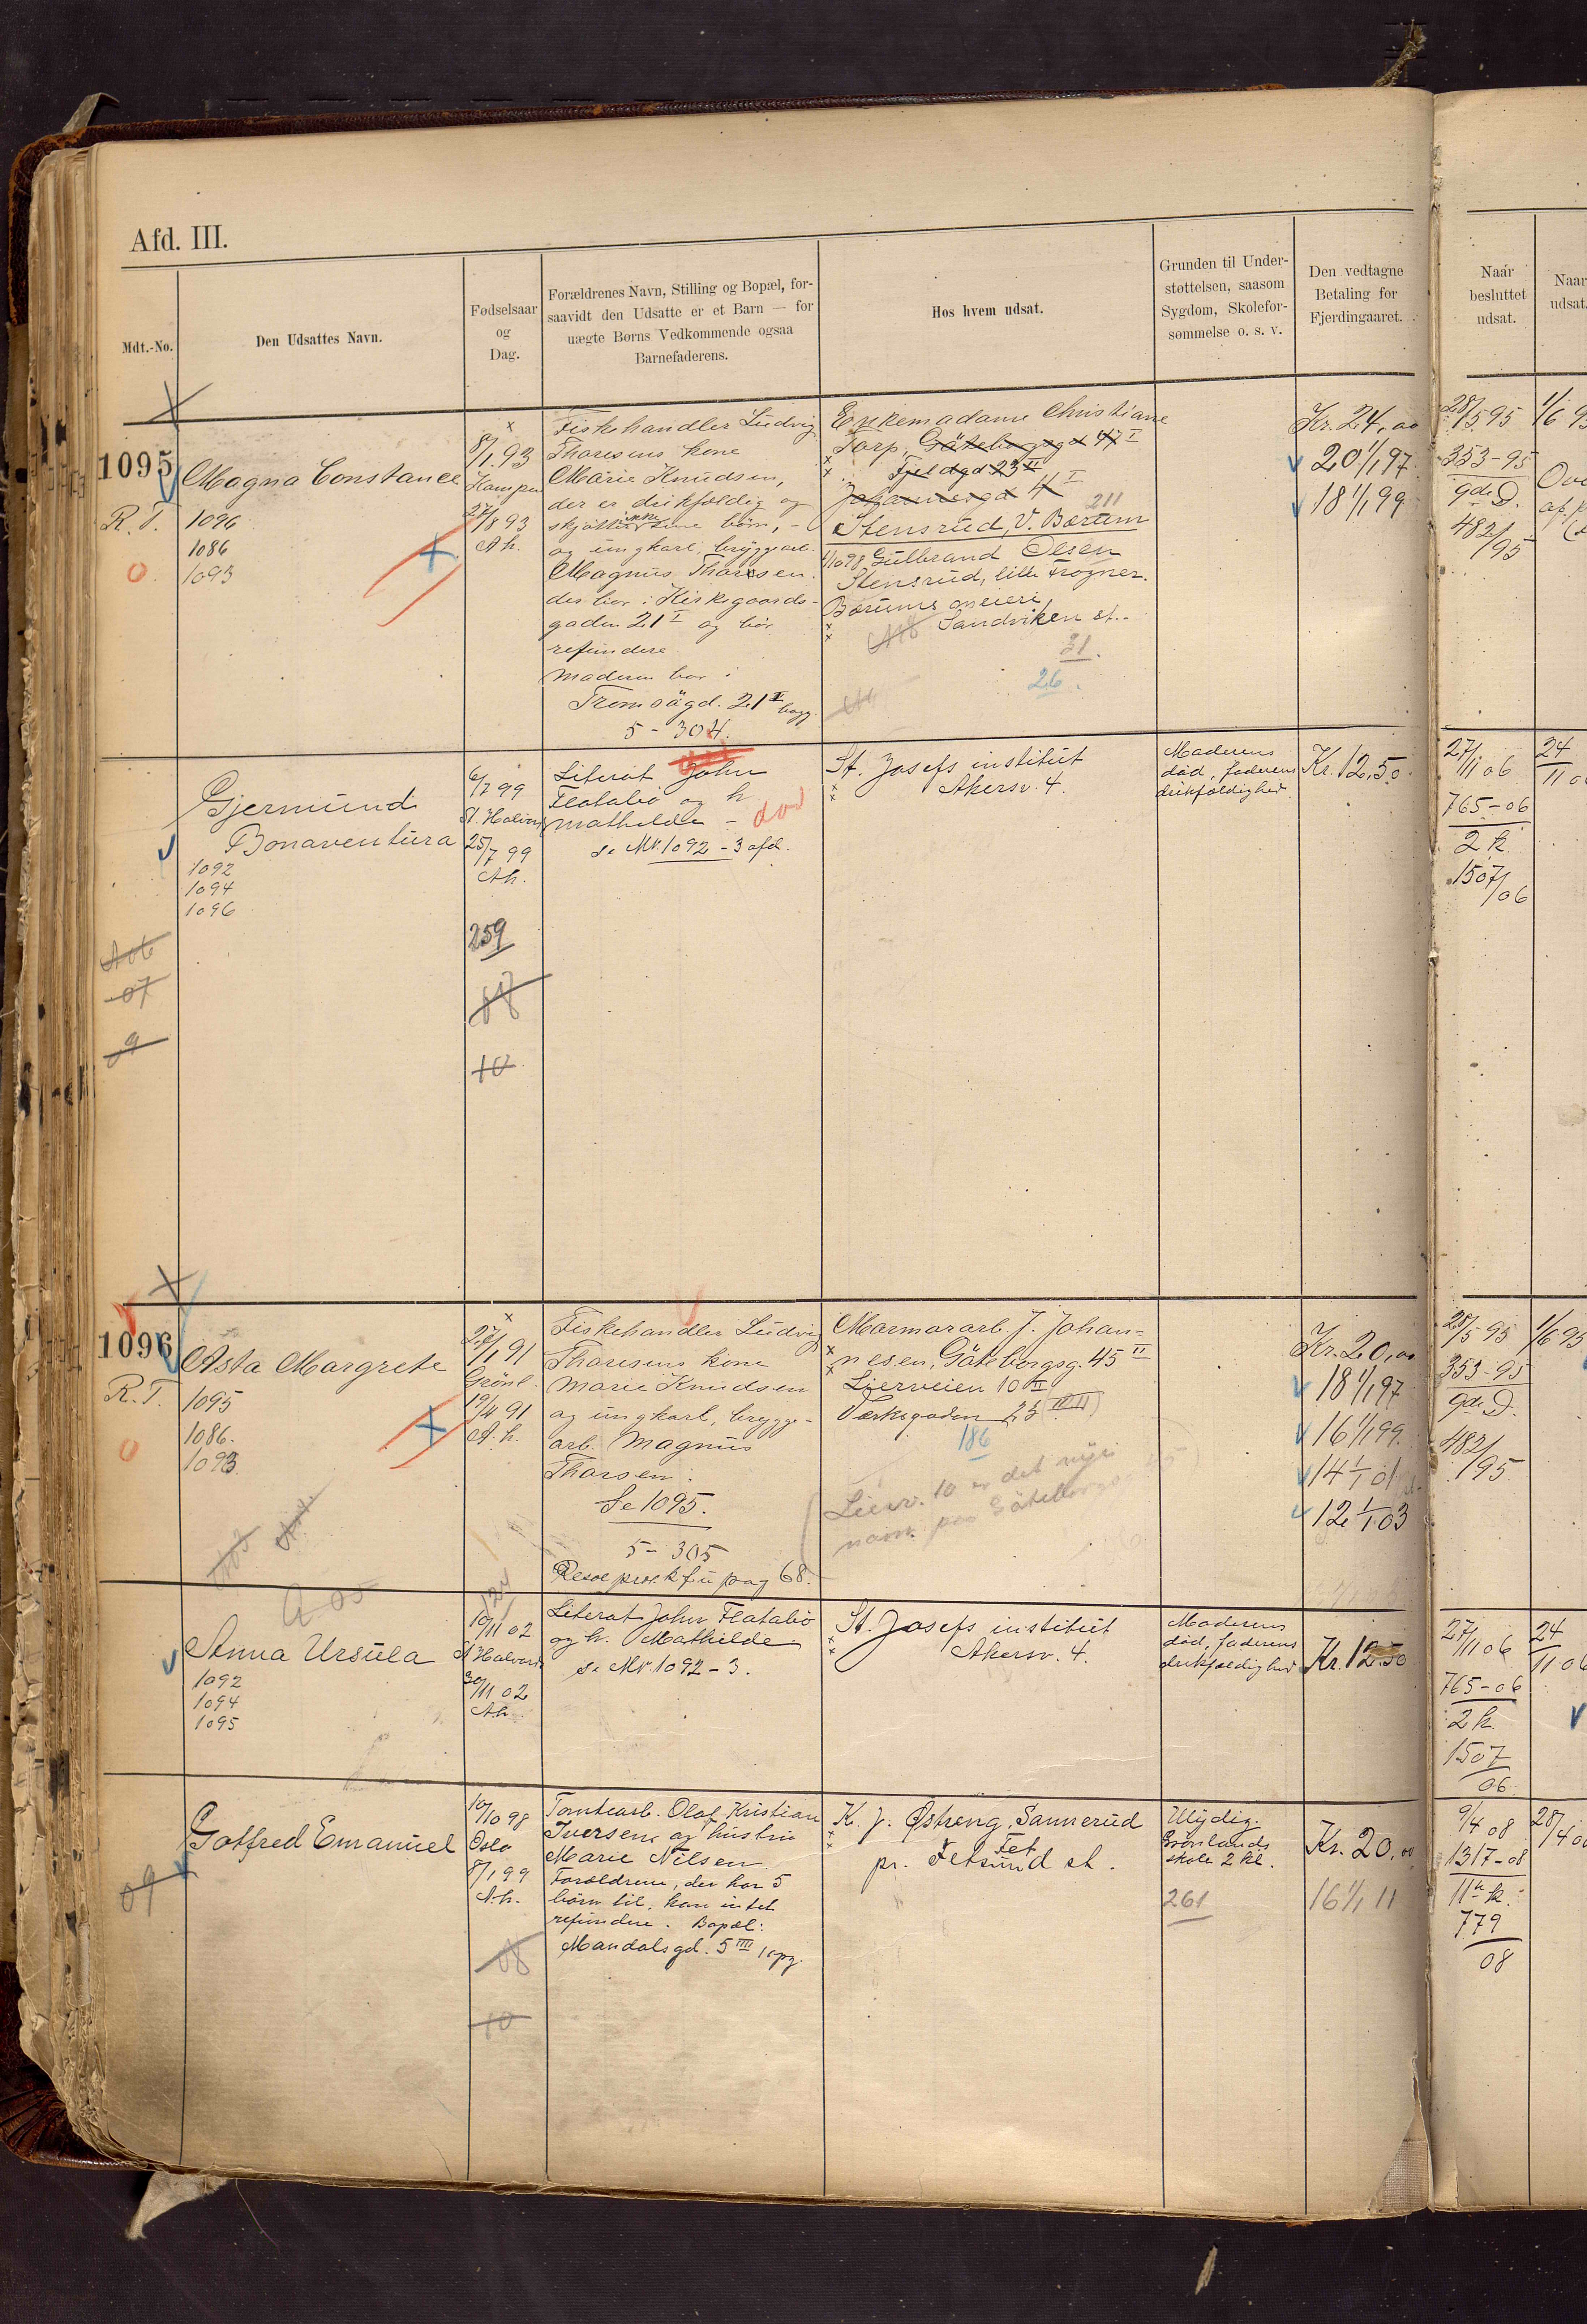 Afd. III.
Mdt.-No.
Den Udsattes Navn.
Fødselsaar
og
Dag.
Forældrenes Navn, Stilling og Bopæl, for-
saavidt den Udsatte er et Barn — for
uægte Børns Vedkommende ogsaa
Barnefaderens.
Hos hvem udsat.
Grunden til Under-
støttelsen, saasom
Sygdom, Skolefor-
sømmelse o. s. v.
Den vedtagne
Betaling for
Fjerdingaaret.
Naar
besluttet
udsat.
Naar
udsat.
1095
R. T.
Magna Constance
1096
1086
1093
8/1 93
Kampen
27/8 93
A h.
Fiskehandler Ludvig
Thoresens kone
Marie Knudsen,
der er drikfældig og
skjøtter ikke sine børn, -
og ungkarl, bryggearb.
Magnus Tharsen.
der bor i Kirkegaards-
gaden 21 I og bør
refundere
moderen bor i
Tromsögd. 21 I bagg.
5 - 304.
Enkemadame Christiane
Torp, Göteborggd 47 I
Fjeldgd 23 II
Johannesgd 4 I
211
Stensrud, V. Bærum
1/10 98 Gulbrand Olsen
Stensrud, lille Frogner.
Bærums meieri,
Sandviken st..
31.
26.
Kr. 24,00
20 1/1 97
18 1/1 99
28/5 95
353-95
gde D.
482/95
1/6 95
Gjermund
Bonaventura
1092
1094
1096
07
9
6/7 99
St. Halvard
25/7 99
A h.
259
10
Literat John
Flatabö og h.
Mathilde -
død
se Mt 1092 - 3 afd.
St. Josefs institut
Akersv. 4.
Moderens
död, faderens
drikfældighed
Kr. 12,50
27/11 06
765-06
2 k
1507/06
24
11 06
1096
R. T.
Asta Margrete
1095
1086.
1093
27/1 91
Grönl.
19/4 91
A. h.
Fiskehandler Ludvig
Thoresens kone
Marie Knudsen
og ungkarl, brygge-
arb. Magnus
Tharsen:
Se 1095.
5 - 305
pag 68.
Marmorarb. J. Johan-
nesen, Göteborgsg. 45 II
Lierveien 10 II
Værksgaden
186
Lierv. 10 er det nye
navn paa Göteborgsg. 45
Kr. 20,00
18 1/1 97
16 1/1 99.
14 1/1 01
12 1/1 03
28/5 95
353-95
gde D.
482/95
1/6 95
Anna Ursula
1092
1094
1095
10/11 02
St Halvard
30/11 02
A.h.
Literat John Flatabö
og h. Mathilde.
se Mt 1092 - 3.
St. Josefs institut
Akersv. 4.
Moderens
död, faderens
drikfældighed
Kr. 12.50
27/11 06
765-06
2 k
1507
06.
24
11 06
Gotfred Emanuel
09
10/10 98
Oslo
8/1 99
A.h.
08
10
Tomtearb. Olaf Kristian
Iversen og hustru
Marie Nilsen
Forældrene, der har 5
börn til, kan intet
refundere. Bopæl:
Mandalsgd. 5 III opg.
K. J. Østreng, Sannerud
Fet
pr. Fetsund st.
Ulydig.
Grönlands
skole 2 kl.
261
Kr. 20.00
16 1/1 11
9/4 08
1317-08
11te k.
779
08
28/4 08